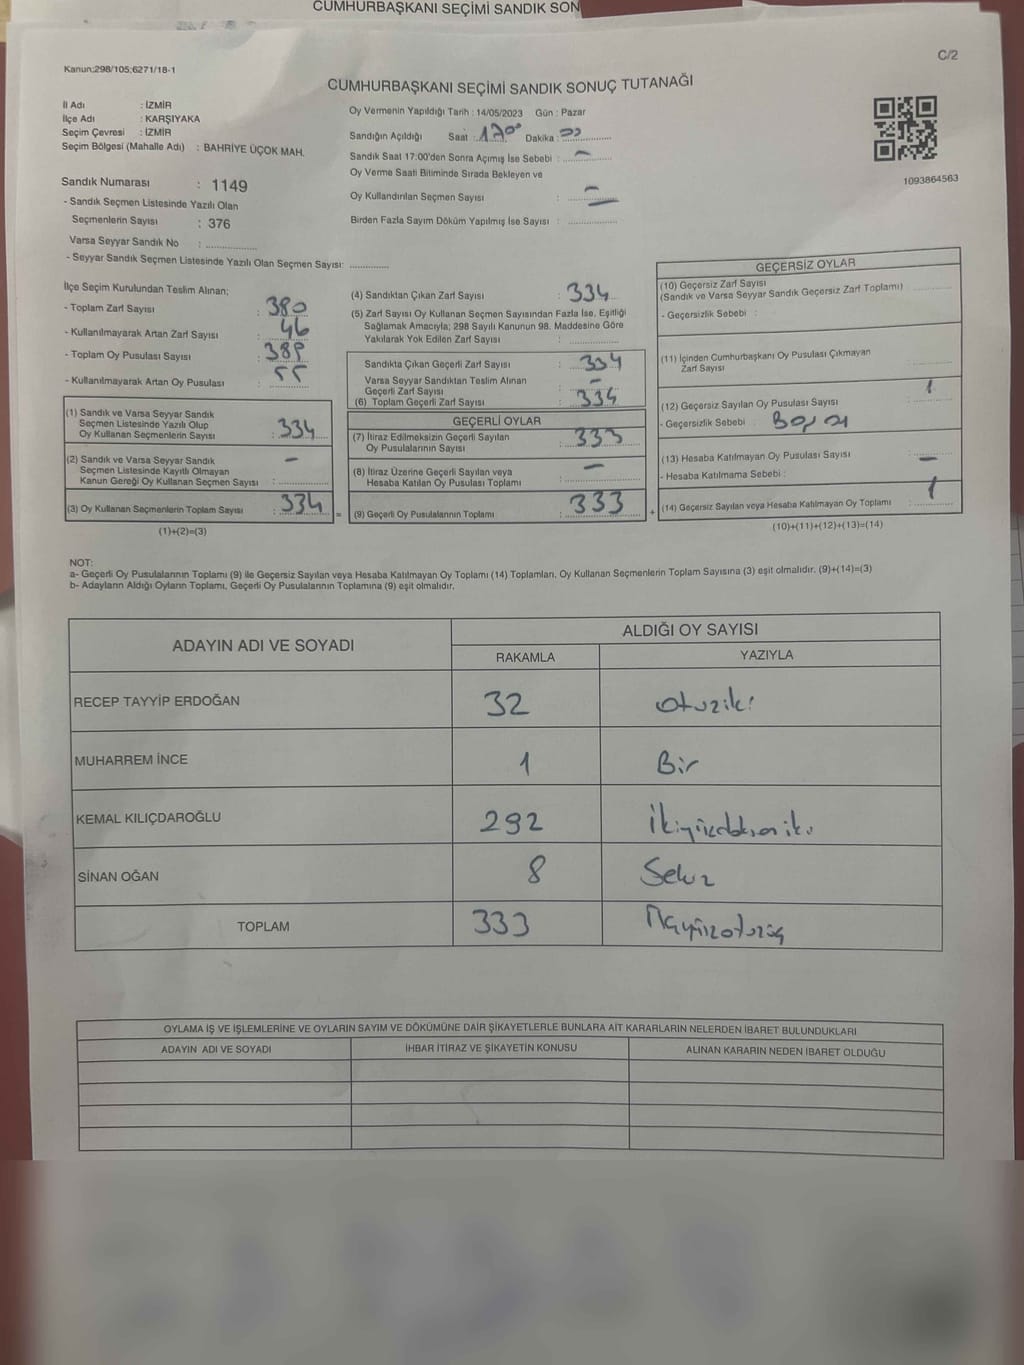 CUMHURBAŞKANI SEÇİMİ SANDIK SON
C/2
Kanun:298/105;6271/18-1
CUMHURBAŞKANI SEÇİMİ SANDIK SONUÇ TUTANAĞI
İl Adı : İZMİR
İlçe Adı : KARŞIYAKA
Seçim Çevresi : İZMİR
Seçim Bölgesi (Mahalle Adı) : BAHRİYE ÜÇOK MAH.
Oy Vermenin Yapıldığı Tarih : 14/05/2023 Gün : Pazar
Sandığın Açıldığı Saat : Dakika :
Sandık Saat 17:00'den Sonra Açımış İse Sebebi : –
Oy Verme Saati Bitiminde Sırada Bekleyen ve
Oy Kullandırılan Seçmen Sayısı : –
Birden Fazla Sayım Döküm Yapılmış İse Sayısı :
1093864563
Sandık Numarası : 1149
- Sandık Seçmen Listesinde Yazılı Olan
Seçmenlerin Sayısı : 376
Varsa Seyyar Sandık No :
- Seyyar Sandık Seçmen Listesinde Yazılı Olan Seçmen Sayısı:
İlçe Seçim Kurulundan Teslim Alınan;
- Toplam Zarf Sayısı : 380
- Kullanılmayarak Artan Zarf Sayısı : 46
- Toplam Oy Pusulası Sayısı : 389
- Kullanılmayarak Artan Oy Pusulası : 55
(1) Sandık ve Varsa Seyyar Sandık
Seçmen Listesinde Yazılı Olup
Oy Kullanan Seçmenlerin Sayısı : 334
(2) Sandık ve Varsa Seyyar Sandık
Seçmen Listesinde Kayıtlı Olmayan
Kanun Gereği Oy Kullanan Seçmen Sayısı : –
(3) Oy Kullanan Seçmenlerin Toplam Sayısı : 334
(1)+(2)=(3)
(4) Sandıktan Çıkan Zarf Sayısı : 334
(5) Zarf Sayısı Oy Kullanan Seçmen Sayısından Fazla İse, Eşitliği
Sağlamak Amacıyla; 298 Sayılı Kanunun 98. Maddesine Göre
Yakılarak Yok Edilen Zarf Sayısı :
Sandıkta Çıkan Geçerli Zarf Sayısı : 334
Varsa Seyyar Sandıktan Teslim Alınan
Geçerli Zarf Sayısı : –
(6) Toplam Geçerli Zarf Sayısı : 334
GEÇERLİ OYLAR
(7) İtiraz Edilmeksizin Geçerli Sayılan
Oy Pusulalarının Sayısı : 333
(8) İtiraz Üzerine Geçerli Sayılan veya
Hesaba Katılan Oy Pusulası Toplamı : –
= (9) Geçerli Oy Pusulalarının Toplamı : 333 +
GEÇERSİZ OYLAR
(10) Geçersiz Zarf Sayısı
(Sandık ve Varsa Seyyar Sandık Geçersiz Zarf Toplamı)
- Geçersizlik Sebebi :
(11) İçinden Cumhurbaşkanı Oy Pusulası Çıkmayan
Zarf Sayısı :
(12) Geçersiz Sayılan Oy Pusulası Sayısı : 1
- Geçersizlik Sebebi :
(13) Hesaba Katılmayan Oy Pusulası Sayısı : –
- Hesaba Katılmama Sebebi :
(14) Geçersiz Sayılan veya Hesaba Katılmayan Oy Toplamı : 1
(10)+(11)+(12)+(13)=(14)
NOT:
a- Geçerli Oy Pusulalarının Toplamı (9) ile Geçersiz Sayılan veya Hesaba Katılmayan Oy Toplamı (14) Toplamları, Oy Kullanan Seçmenlerin Toplam Sayısına (3) eşit olmalıdır. (9)+(14)=(3)
b- Adayların Aldığı Oyların Toplamı, Geçerli Oy Pusulalarının Toplamına (9) eşit olmalıdır.
ADAYIN ADI VE SOYADI
ALDIĞI OY SAYISI
RAKAMLA YAZIYLA
RECEP TAYYİP ERDOĞAN 32 Otuziki
MUHARREM İNCE 1 Bir
KEMAL KILIÇDAROĞLU 292
SİNAN OĞAN 8 Sekiz
TOPLAM 333
OYLAMA İŞ VE İŞLEMLERİNE VE OYLARIN SAYIM VE DÖKÜMÜNE DAİR ŞİKAYETLERLE BUNLARA AİT KARARLARIN NELERDEN İBARET BULUNDUKLARI
ADAYIN ADI VE SOYADI
İHBAR İTİRAZ VE ŞİKAYETİN KONUSU
ALINAN KARARIN NEDEN İBARET OLDUĞU